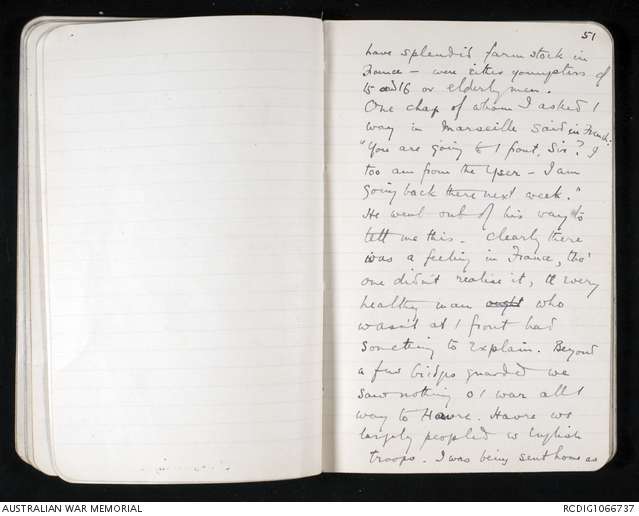 51
have splendid farm stock in
France - were either youngsters of
15 and 16 or elderly men.
One chap of whom I asked /
way in Marseille said in French:
"You are going to / front, Sir? I
too am from the Yser - I am
going back there next week."
He went out of his way to
tell me this. Clearly there
was a feeling in France, tho'
one didn't realise it, tt every
healthy man ought who
wasn't at / front had
something to explain. Beyond
a few bridges guarded we
saw nothing o / war all /
way to Havre. Havre ws
largely peopled w English
troops. I was being sent home as
AUSTRALIAN WAR MEMORIAL
RCDIG1066737